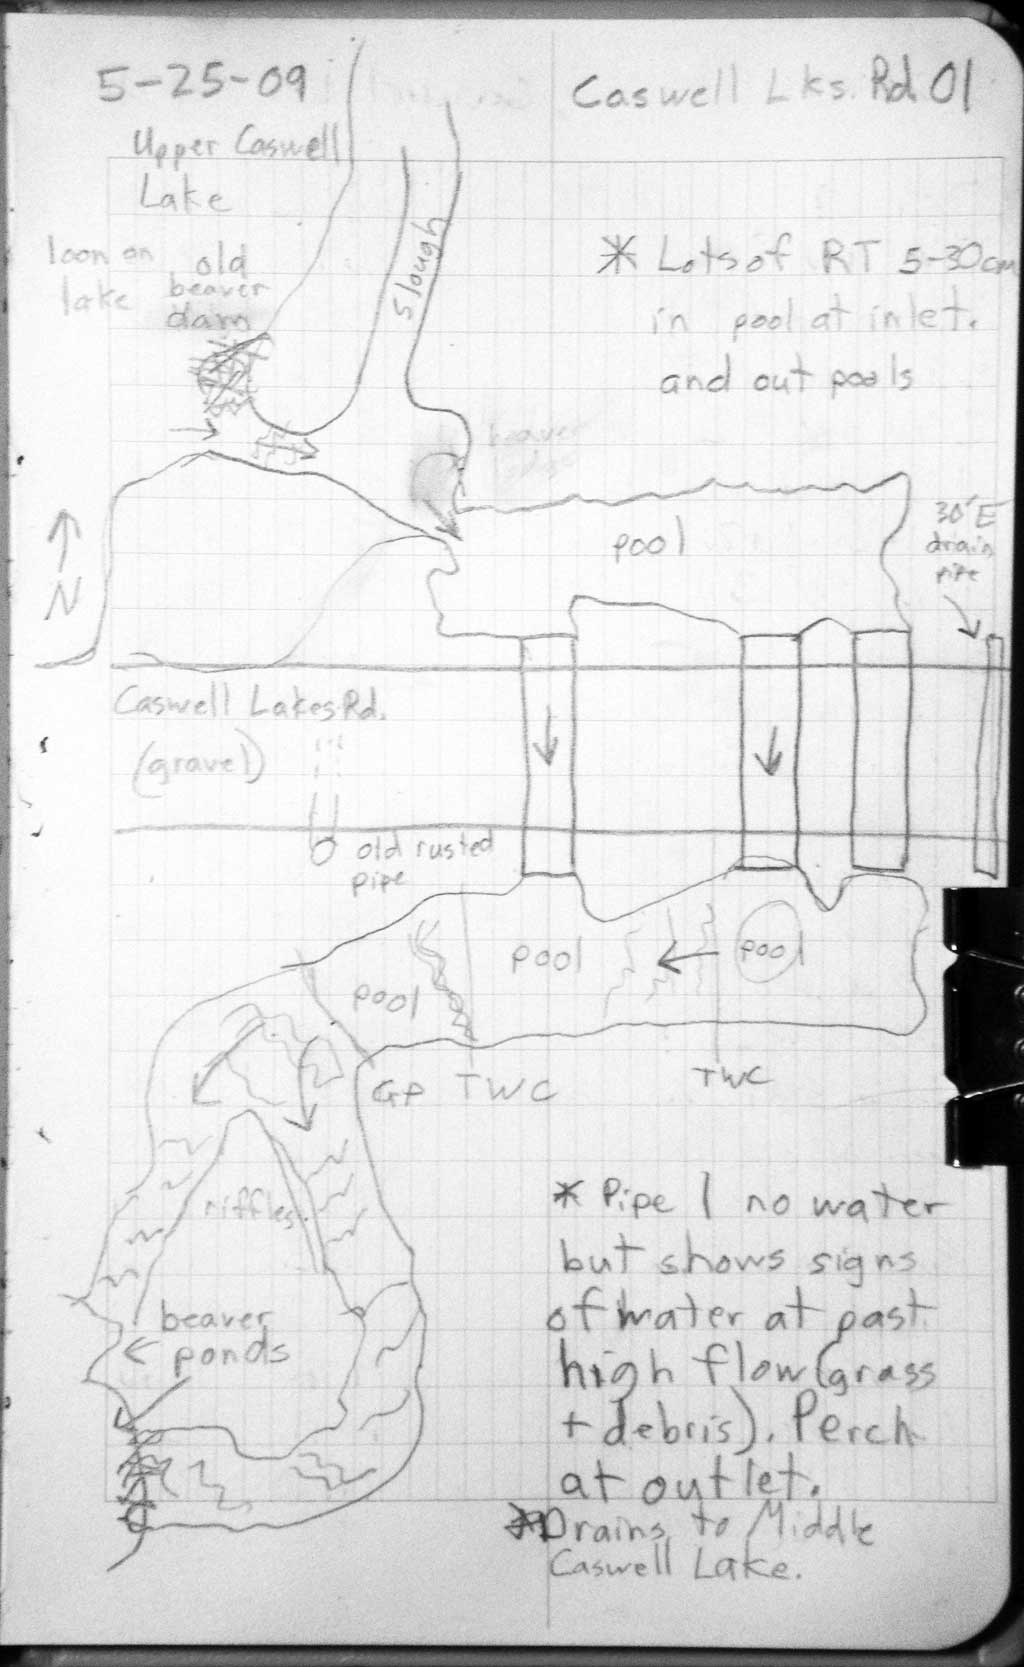 5-25-09
Caswell Lks. Rd. 01
Upper Caswell
Lake
loon on
lake
old
beaver
dam
slough
* Lots of RT 5-30cm
in pool at inlet.
and out pools
beaver
lodge
pool
30' E
drain
pipe
N
Caswell Lakes Rd.
(gravel)
old rusted
pipe
pool
pool
pool
GP TWC
TWC
riffles
beaver
ponds
* Pipe 1 no water
but shows signs
of water at past
high flow (grass
+ debris). Perch
at outlet.
* Drains to Middle
Caswell Lake.